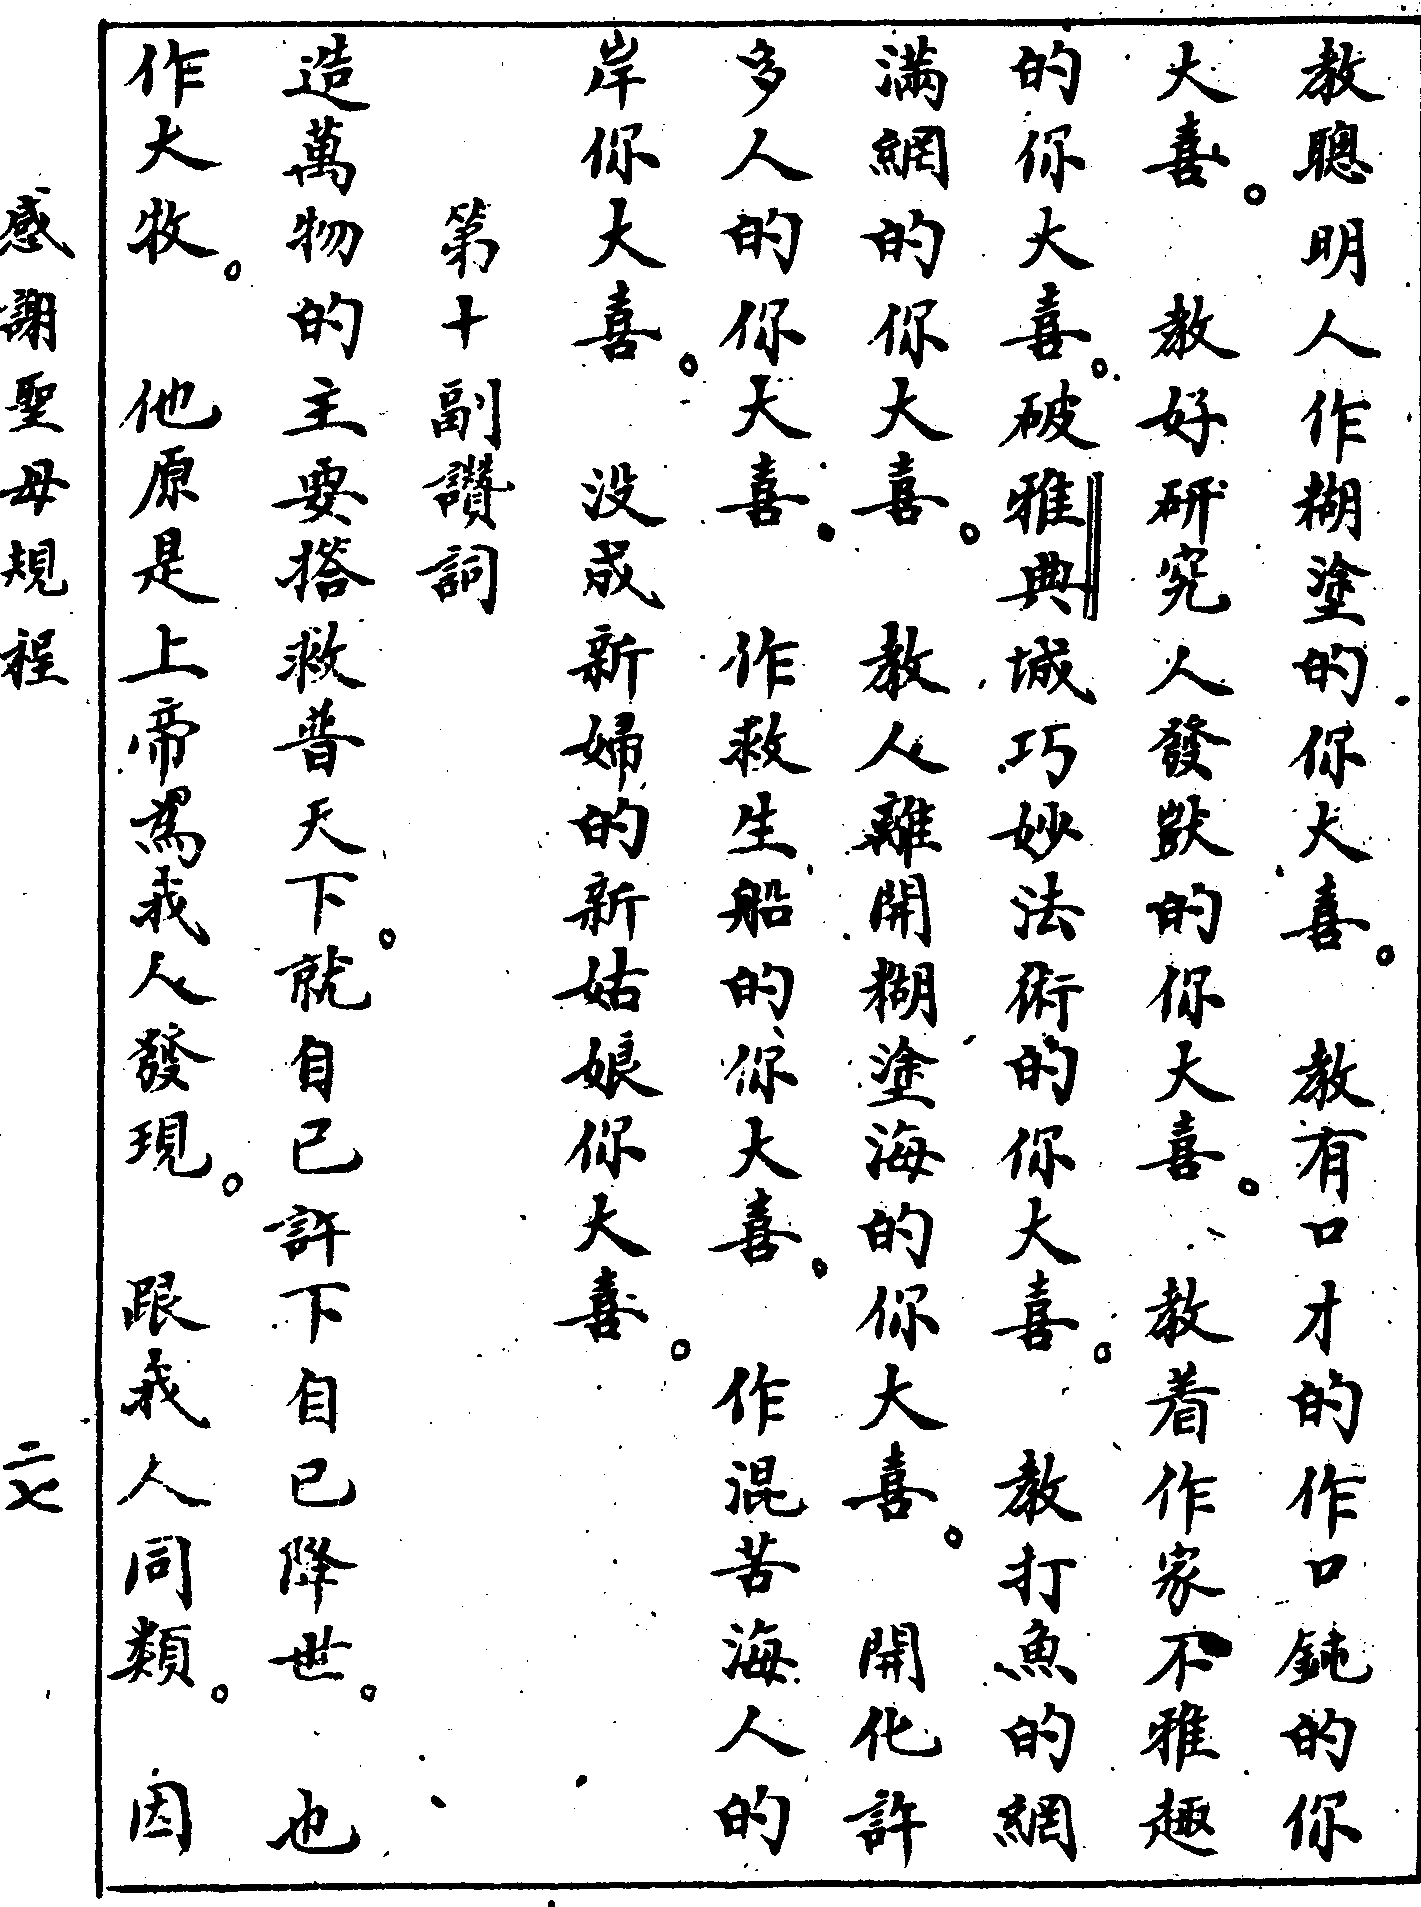 教聰明人作糊塗的你大喜。 教有口才的作口鈍的你
大喜。 教好研究人發獃的你大喜。 教着作家不雅趣
的你大喜。破雅典城巧妙法術的你大喜。 教打魚的網
滿網的你大喜。 教人離開糊塗海的你大喜。 開化許
多人的你大喜。 作救生船的你大喜。 作混苦海人的
岸你大喜。 没成新婦的新姑娘你大喜。
第十副讚詞
造萬物的主要搭救普天下。就自己許下自己降世。 也
作大牧。 他原是上帝為我人發現。 跟我人同類。 因
感謝聖母規程 二七